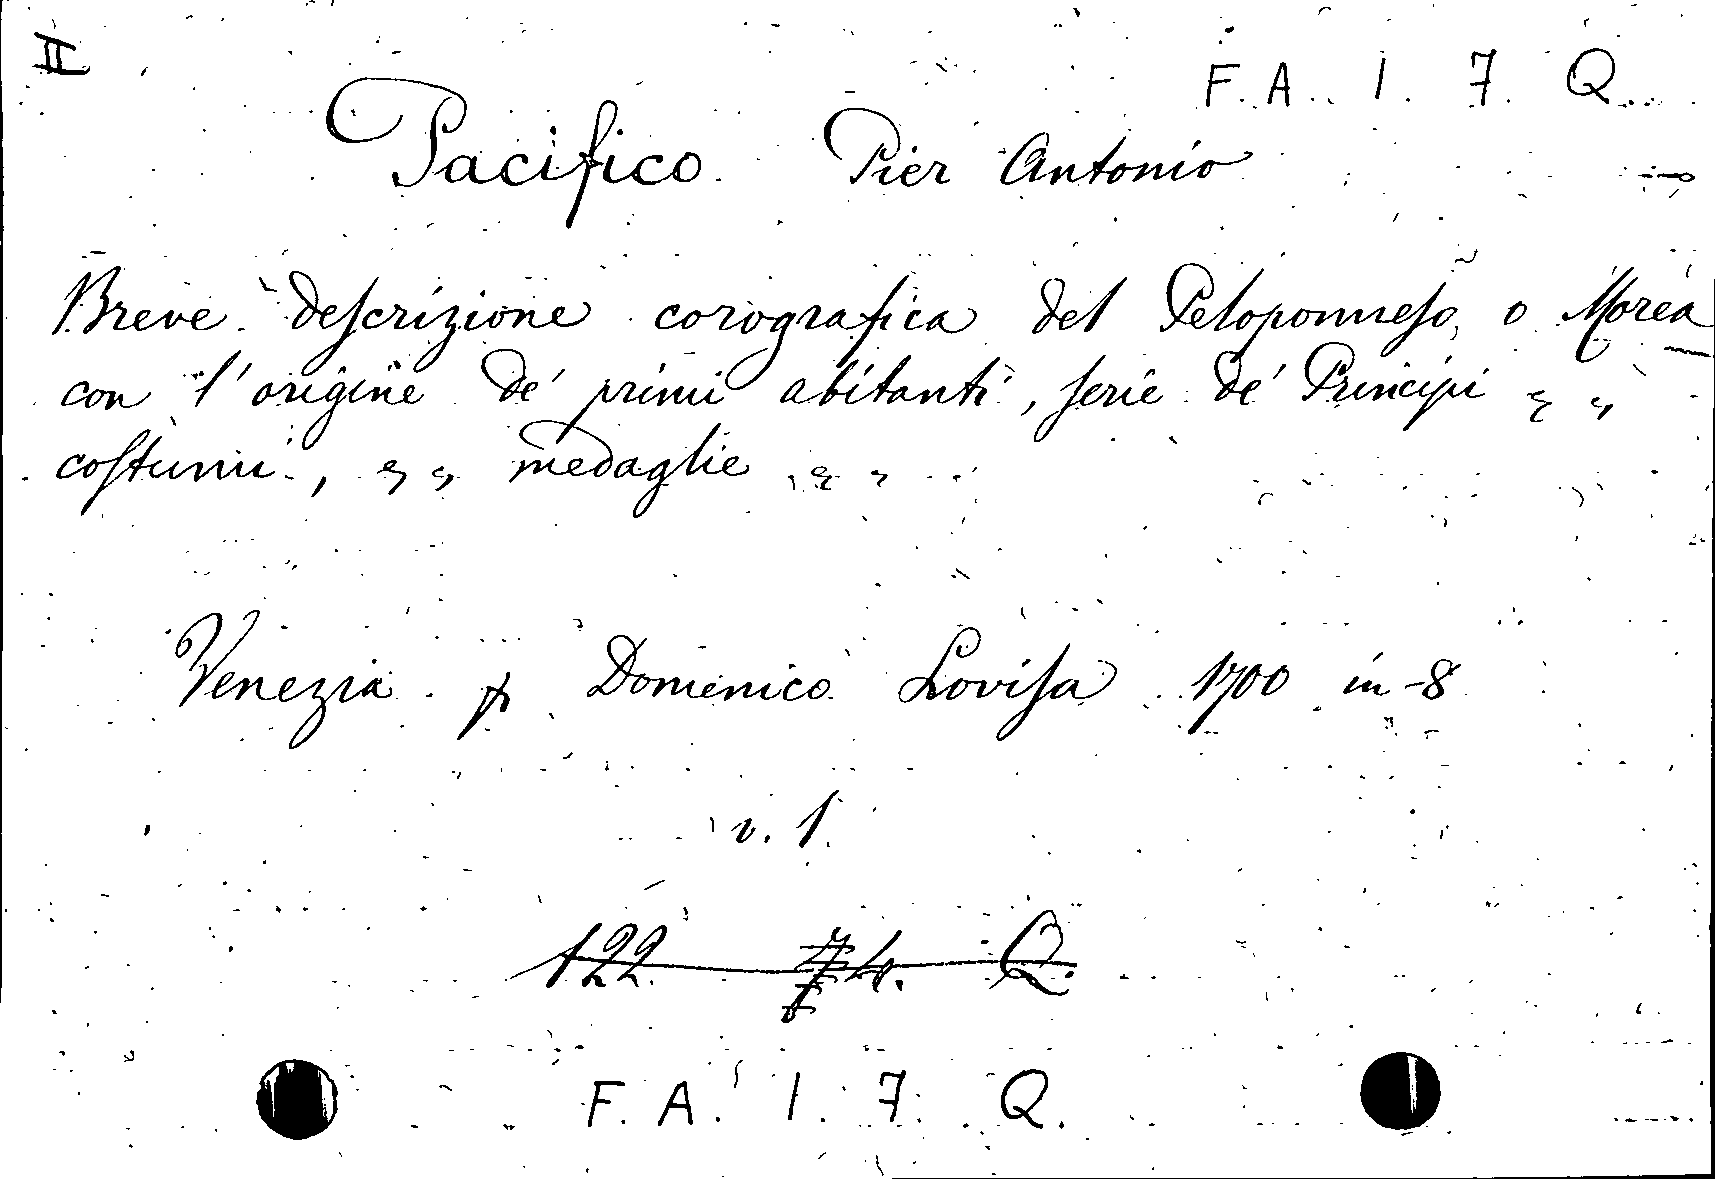 II
F. A. I. 7. Q.
Pacifico Pier Antonio
Breve descrizione corografica del Peloponneso, o Morea
con l'origine de' primi abitanti, serie de' Principi " "
costumi, " " medaglie " "
Venezia p Domenico Lovisa 1700 in-8
v. 1.
122. 74. Q.
F. A. I. 7. Q.